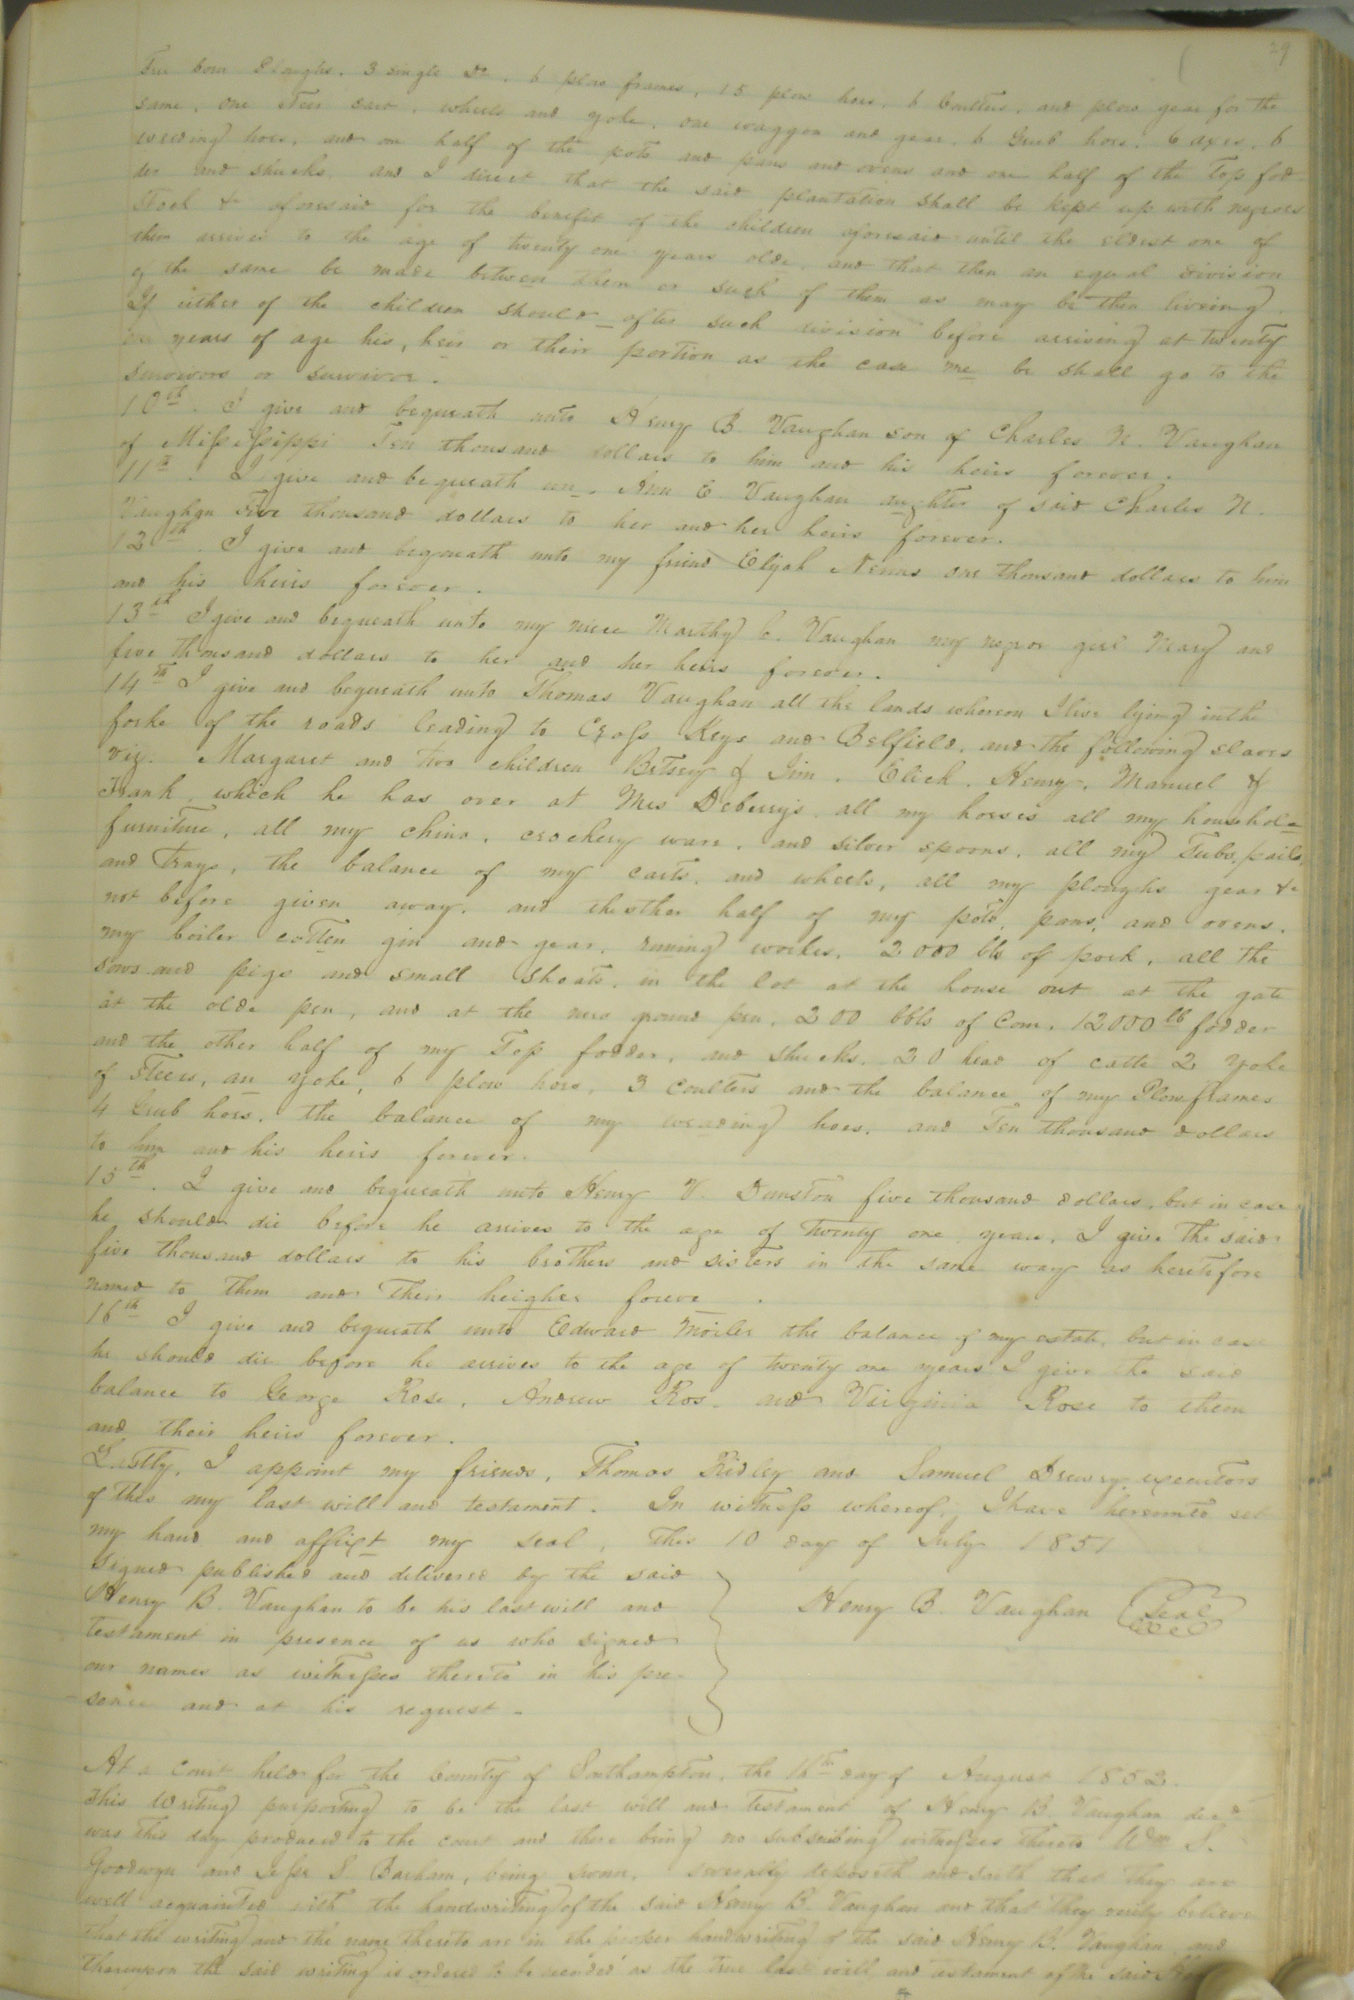 29
two horse Ploughs. 3 single Do. 6 plow frames, 15 plow hoes. 6 Coulters. and plow gear for the
same, one Steer cart, wheels and yoke, one waggon and gear, 6 Grub hoes. 6 axes. 6
weeding hoes, and on half of the pots and pans and ovens and one half of the Top fod-
der and shucks, and I direct that the said plantation shall be kept up with negroes
Stock &c aforesaid for the benefit of the children aforesaid until the eldest one of
them arrives to the age of twenty one years olde, and that then an equal division
of the same be made between them or such of them as may be then liveing.
If either of the children should after such division before arriving at twenty
years of age his, heir or their portion as the case me be shall go to the
survivors or survivor.
10th. I give and bequeath unto Henry B. Vaughan son of Charles N. Vaughan
of Missisippi Ten thousand dollars to him and his heirs forever.
11th. I give and bequeath un. Ann E. Vaughan aughter of said Charles N.
Vaughan Five thousand dollars to her and her heirs forever.
12th. I give and beqoueath unto my friend Elijah one thousand dollars to him
and his heirs forever.
13th I give and bequeath unto my niece Marthy C. Vaughan my negror girl Mary and
five thousand dollars to her and her heirs forever.
14th I give and bequeath unto Thomas Vaughan all the lands whereon I live lying in the
forke of the roads leading to Cross Keys and Belfield, and the following slaves
viz. Margaret and two children Betsey & Jim. Elick. Henry. Manuel &
Frank. which he has over at Mrs Deberry's. all my horses all my household
furniture, all my china. crockery ware. and silver spoons. all my Tubs, pails,
and Trays, the balance of my carts. and wheels, all my ploughs gear &c
not before given away. and the other half of my pots, pans, and ovens.
my boiler cotten gin and gear. runing workes. 2000 lbs of pork. all the
sows and pigs and small shoats. in the lot at the house out at the gate
at the olde pen, and at the new ground pen. 200 bbls of Corn. 12000 lb fodder
and the other half of my Top fodder. and shucks. 20 head of catte 2 yoke
of Steers, an yoke, 6 plow hoes, 3 coulters and the balance of my Plow frames
4 Grub hoes. the balance of my weading hoes. and Ten thousand dollars
to him and his heirs forever.
15th. I give and bequeath unto Henry V. Dunston five thousand dollars, but in case
he should die before he arrives to the age of Twenty one years, I give the said
five thousand dollars to his brothers and sisters in the same way as heretofore
named to them and their heighes foreve.
16th I give and bequeath unto Edward the balance of my estate, but in case
he should die before he arrives to the age of twenty one years I give the said
balance to George Rose, Andrew Ros. and Virginia Rose to them
and their heirs forever.
Lastly, I appoint my friends, Thomas Ridley and Samuel Drewry executors
of this my last will and testament. In witness whereof, I have hereunto set
my hand and affixt my seal, this 10 day of July 1851
Signed published and delivered by the said
Henry B. Vaughan to be his last will and
testament in presence of us who signed
our names as witnesses thereto in his pre-
sence and at his request.
Henry B. Vaughan Seal
At a court held for the County of Southampton, the 16th day of August 1852.
This Writing purporting to be the last will and testament of Henry B. Vaughan decd
was this day produced to the court and there being no subscribing witnesses thereto Wm S.
Goodwyn and Jesse S. Barham, being sworn. severally deposeth and saith that they are
well acquainted with the handwriting of the said Henry B. Vaughan and that they verily believe
that the writing and the name thereto are in the proper handwriting of the said Henry B. Vaughan and
thereupon the said writing is ordered to be recorded as the true last will and testament of the said